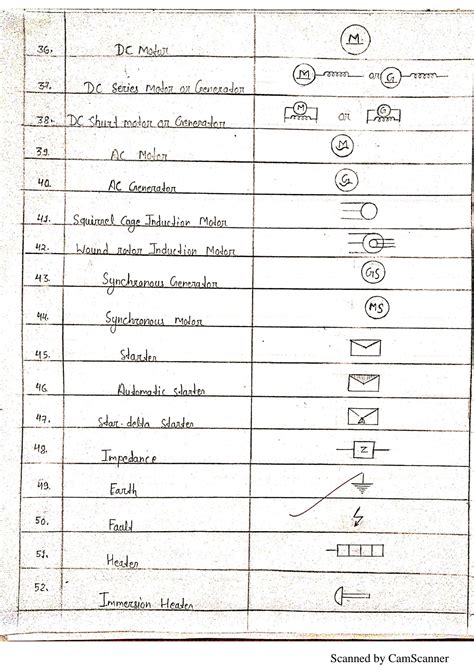 36. DC Motor M
37. DC Series Motor or Generator M or G
38. DC Shunt motor or Generator M or G
39. AC Motor M
40. AC Generator G
41. Squirrel Cage Induction Motor
42. Wound rotor Induction Motor
43. Synchronous Generator GS
44. Synchronous motor MS
45. Starter
46. Automatic starter
47. Star-delta Starter
48. Impedance Z
49. Earth
50. Fault
51. Heater
52. Immersion Heater
Scanned by CamScanner